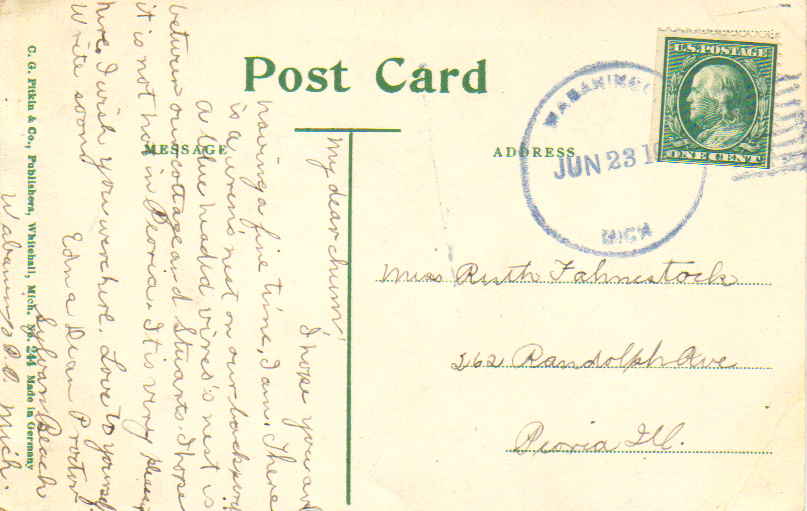 Post Card
MESSAGE
ADDRESS
U.S. POSTAGE
ONE CENT
JUN 23 19
MICH
Miss Ruth Fahnestock
262 Randolph Ave
Peoria Ill.
My dear chum,
I hope you are
having a fine time, I am. There
is a wrens nest on our back
a blue headed vireo's nest is
between our cottage and Stuarts. I hope
it is not hot in Peoria. It is very
here, I wish you were here. Love to yourself
Write soon
Edna Dean Proctor
Sylvan Beach
Wabaningo P.O. Mich.
C. G. Pitkin & Co., Publishers, Whitehall, Mich. No. 244 Made in Germany